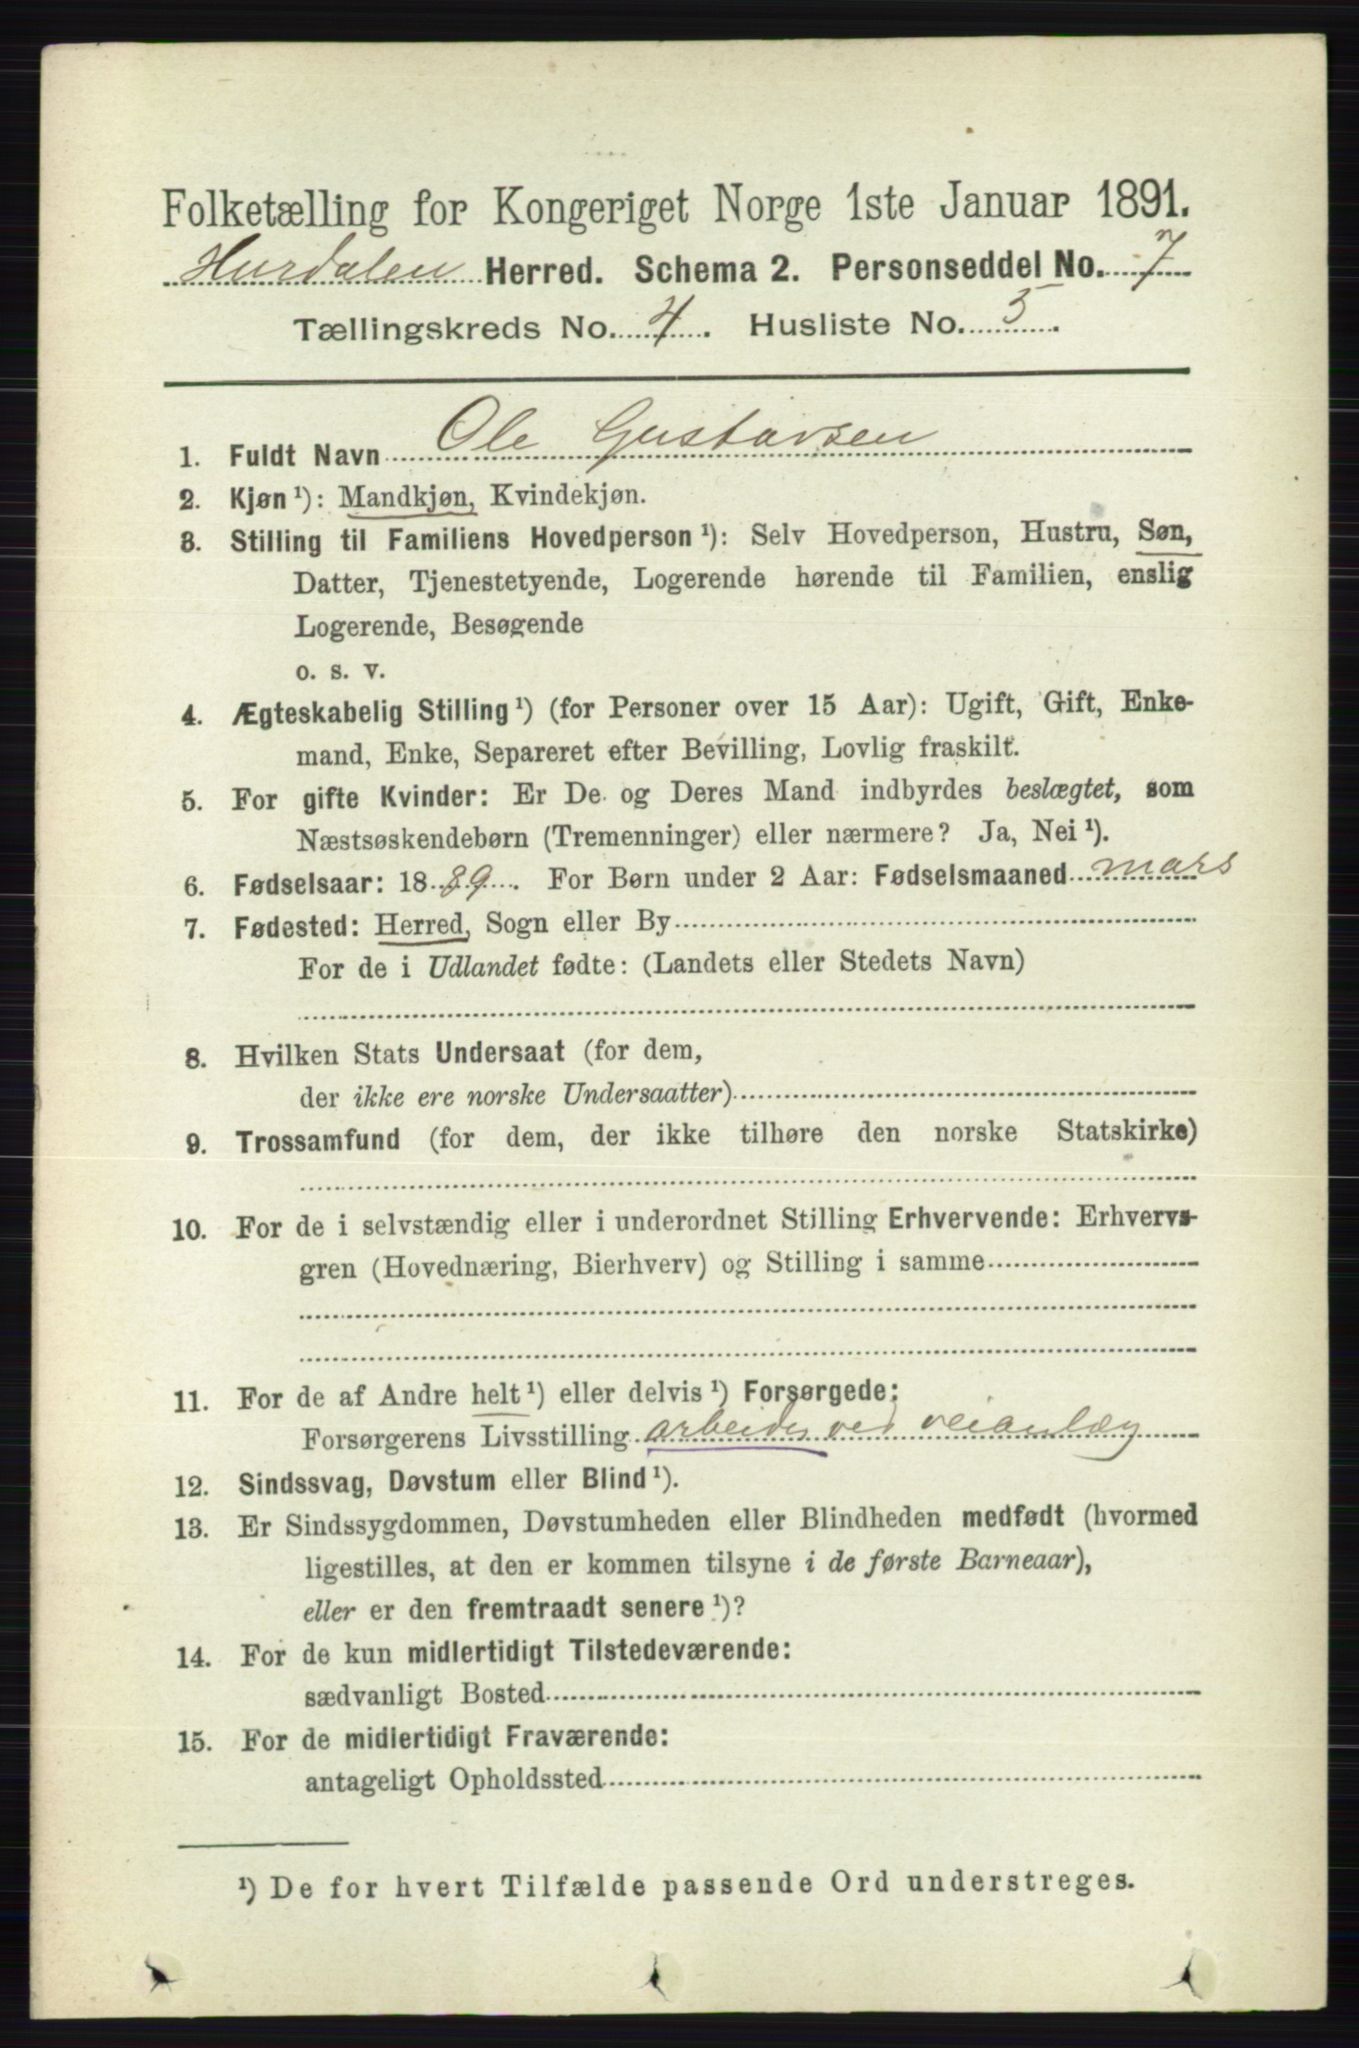 Folketælling for Kongeriget Norge 1ste Januar 1891.
Hurdalen Herred. Schema 2. Personseddel No. 7
Tællingskreds No. 4. Husliste No. 5.
1. Fuldt Navn Ole Gustavsen
2. Kjøn ¹): Mandkjøn, Kvindekjøn.
3. Stilling til Familiens Hovedperson ¹): Selv Hovedperson, Hustru, Søn,
Datter, Tjenestetyende, Logerende hørende til Familien, enslig
Logerende, Besøgende
o. s. v.
4. Ægteskabelig Stilling ¹) (for Personer over 15 Aar): Ugift, Gift, Enke-
mand, Enke, Separeret efter Bevilling, Lovlig fraskilt.
5. For gifte Kvinder: Er De og Deres Mand indbyrdes beslægtet, som
Næstsøskendebørn (Tremenninger) eller nærmere? Ja, Nei ¹).
6. Fødselsaar: 1889. For Børn under 2 Aar: Fødselsmaaned mars
7. Fødested: Herred, Sogn eller By
For de i Udlandet fødte: (Landets eller Stedets Navn)
8. Hvilken Stats Undersaat (for dem,
der ikke ere norske Undersaatter)
9. Trossamfund (for dem, der ikke tilhøre den norske Statskirke)
10. For de i selvstændig eller i underordnet Stilling Erhvervende: Erhvervs-
gren (Hovednæring, Bierhverv) og Stilling i samme
11. For de af Andre helt ¹) eller delvis ¹) Forsørgede:
Forsørgerens Livsstilling arbeider ved veianlæg
12. Sindssvag, Døvstum eller Blind ¹).
13. Er Sindssygdommen, Døvstumheden eller Blindheden medfødt (hvormed
ligestilles, at den er kommen tilsyne i de første Barneaar),
eller er den fremtraadt senere ¹)?
14. For de kun midlertidigt Tilstedeværende:
sædvanligt Bosted
15. For de midlertidigt Fraværende:
antageligt Opholdssted
¹) De for hvert Tilfælde passende Ord understreges.